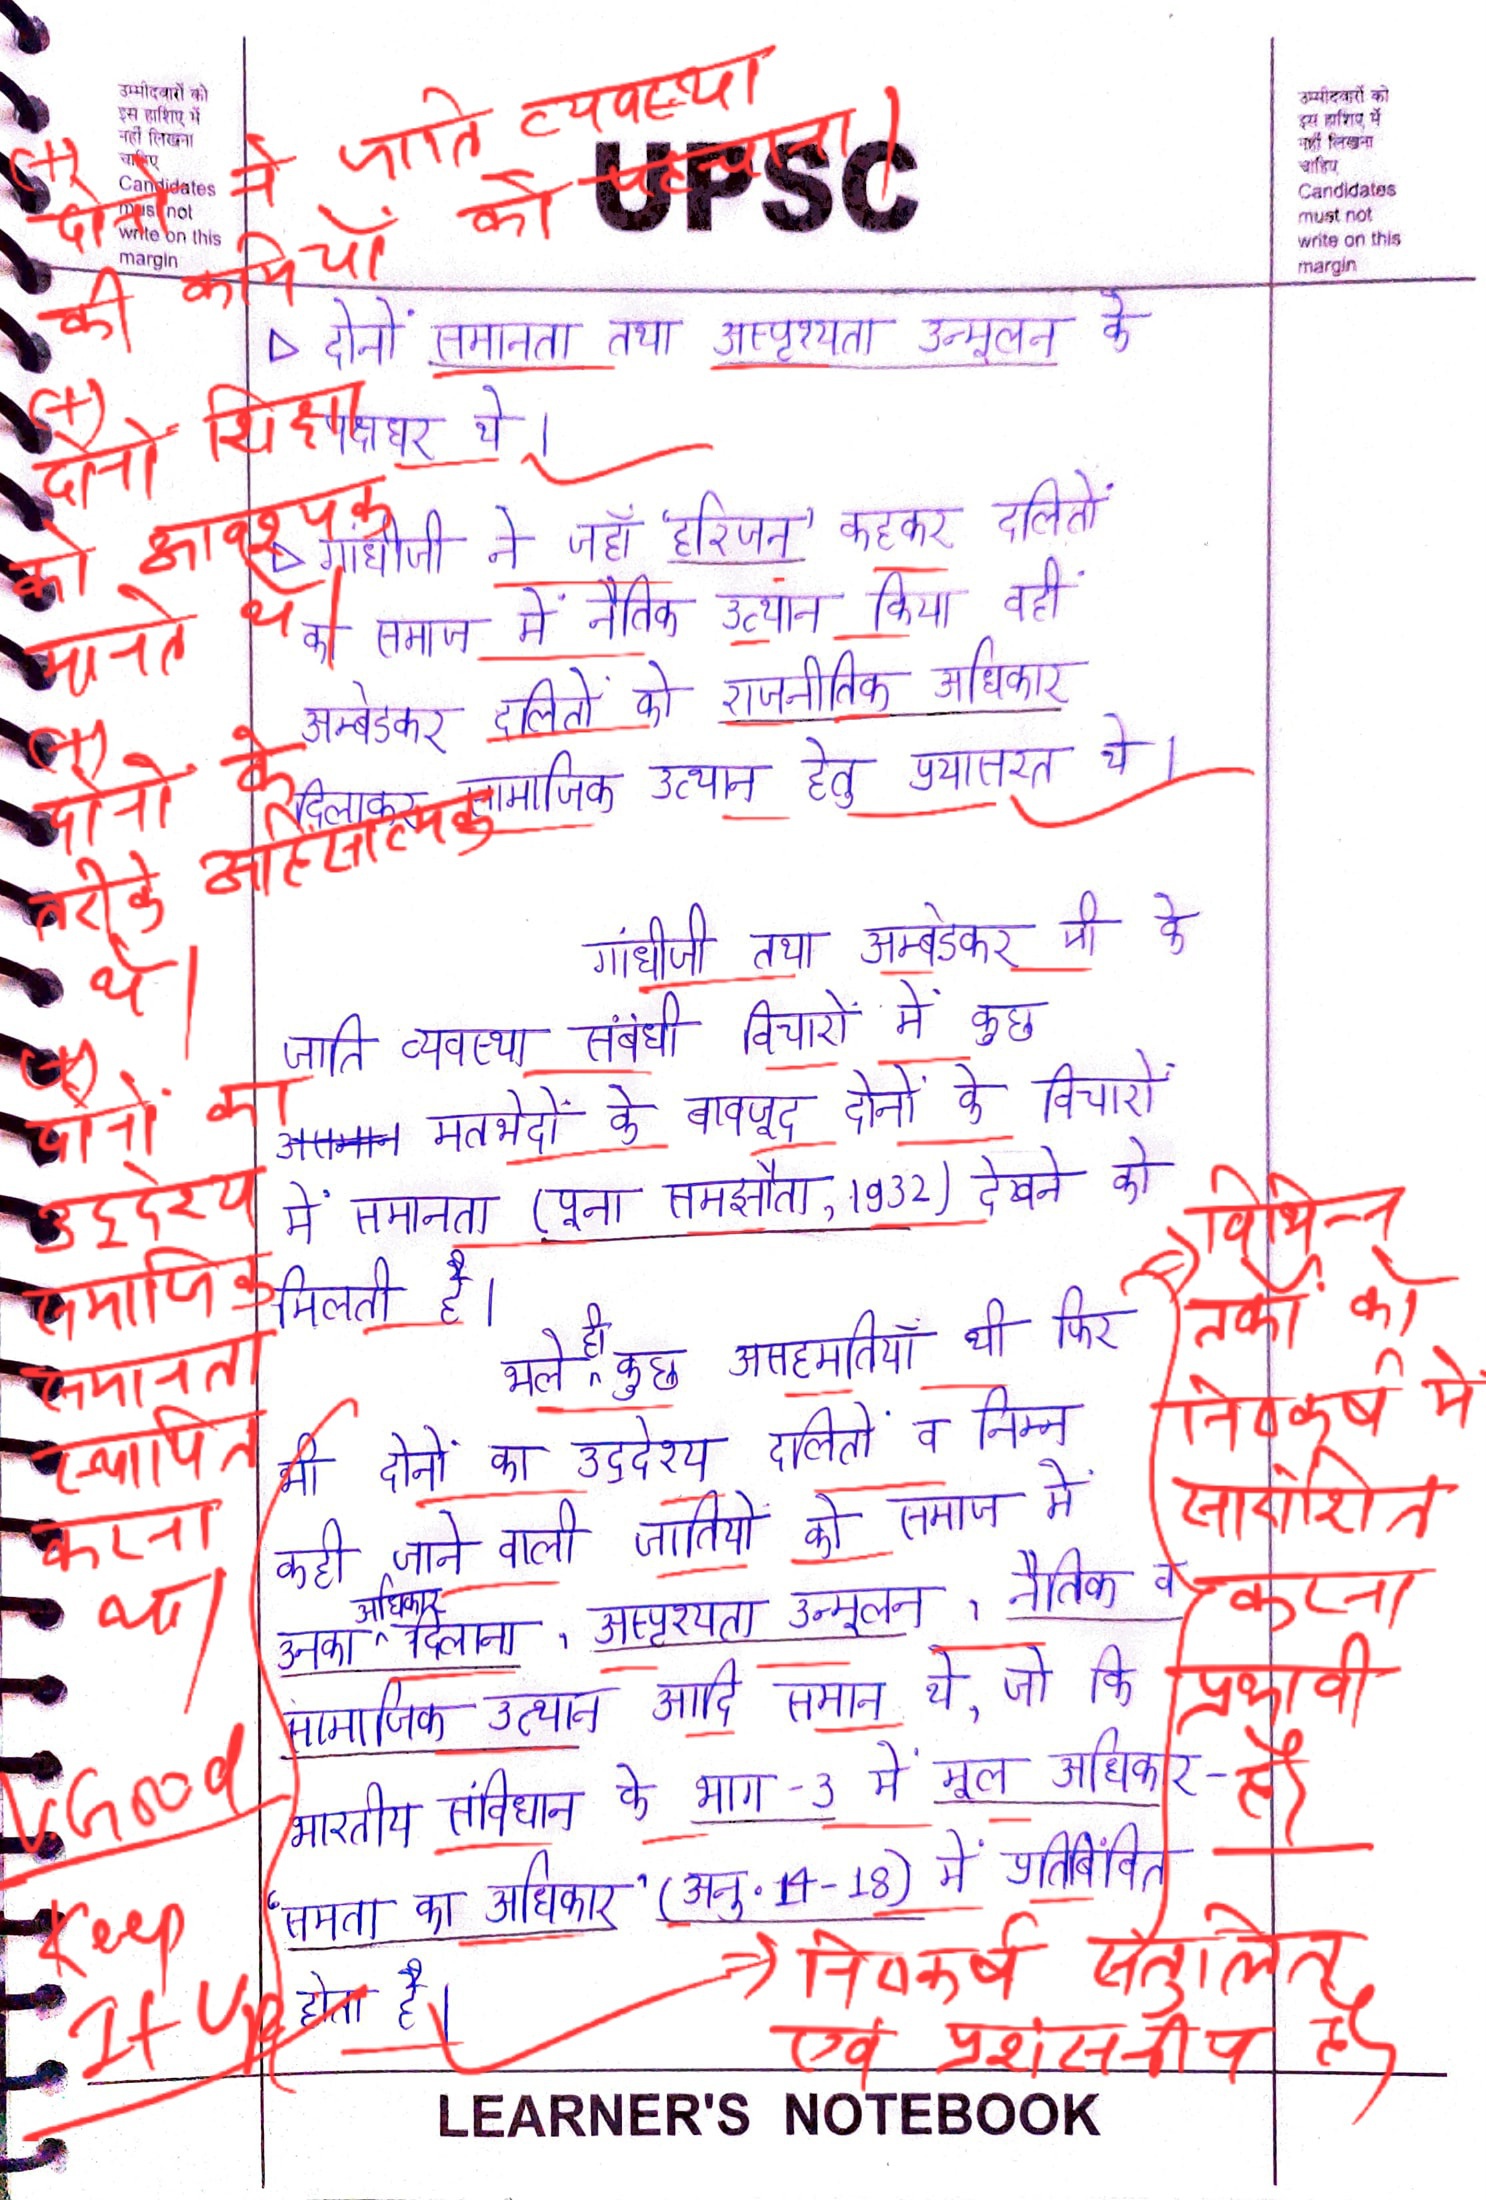 उम्मीदवारों को
इस हाशिए में
नहीं लिखना
चाहिए
Candidates
must not
write on this
margin
UPSC
उम्मीदवारों को
इस हाशिए में
नहीं लिखना
चाहिए
Candidates
must not
write on this
margin
(+)
दोनों ने जाति व्यवस्था
की कमियों को पहचाना।
(+)
दोनों शिक्षा
को आवश्यक
मानते थे।
(+)
दोनों के
तरीके अहिंसात्मक
थे।
(+)
दोनों का
उद्देश्य
समाजिक
समानता
स्थापित
करना
था।
V Good
Keep
It Up
▷ दोनों समानता तथा अस्पृश्यता उन्मूलन के
पक्षधर थे।
▷ गांधीजी ने जहाँ 'हरिजन' कहकर दलितों
को समाज में नैतिक उत्थान किया वहीं
अम्बेडकर दलितों को राजनीतिक अधिकार
दिलाकर सामाजिक उत्थान हेतु प्रयासरत थे।
गांधीजी तथा अम्बेडकर जी के
जाति व्यवस्था संबंधी विचारों में कुछ
असमान मतभेदों के बावजूद दोनों के विचारों
में समानता (पूना समझौता, 1932) देखने को
मिलती है।
भले ही कुछ असहमतियाँ थी फिर
भी दोनों का उद्देश्य दलितों व निम्न
कही जाने वाली जातियों को समाज में
उनका अधिकार दिलाना, अस्पृश्यता उन्मूलन, नैतिक व
सामाजिक उत्थान आदि समान थे, जो कि
भारतीय संविधान के भाग-3 में मूल अधिकार-
'समता का अधिकार' (अनु. 14-18) में प्रतिबिंवित
होता है।
→ विभिन्न
तर्कों को
निष्कर्ष में
सारांशित
करना
प्रभावी
है
→ निष्कर्ष संतुलित
एवं प्रशंसनीय है
LEARNER'S NOTEBOOK